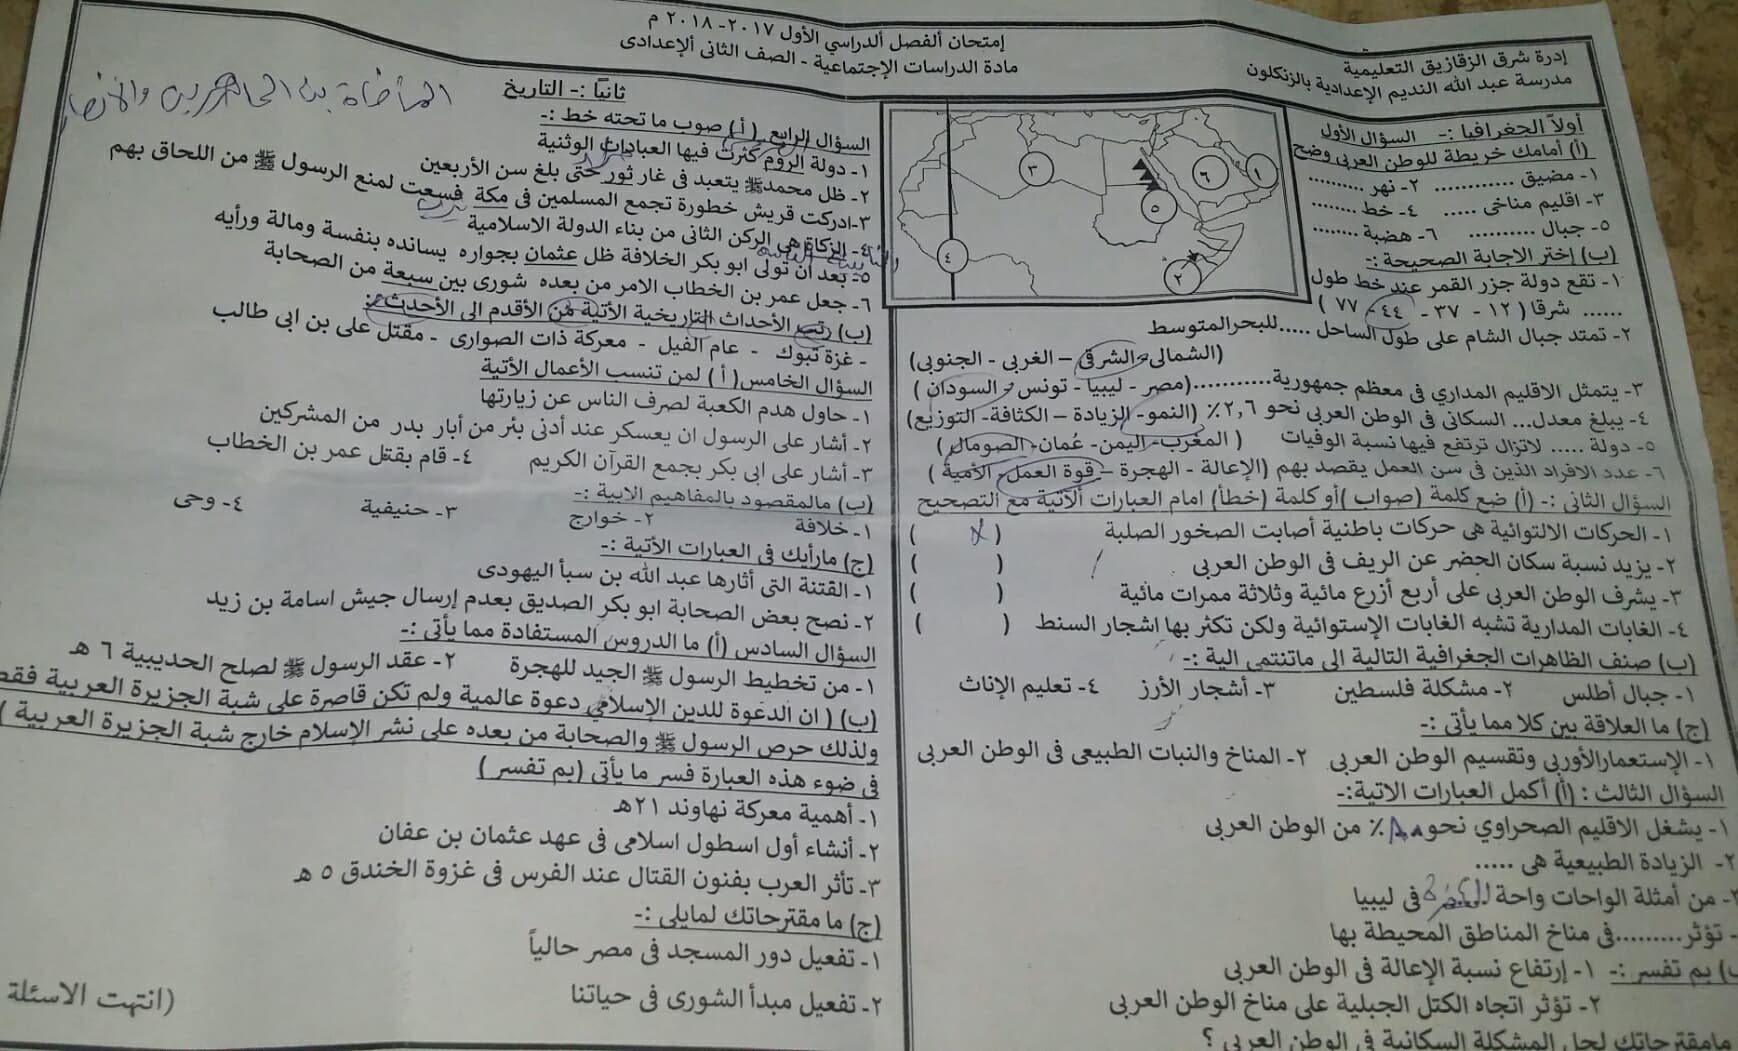 إدرة شرق الزقازيق التعليمية
مدرسة عبد الله النديم الإعدادية بالزنكلون
إمتحان ألفصل ألدراسي الأول ٢٠١٧- ٢٠١٨ م
مادة الدراسات الإجتماعية - الصف الثانى ألإعدادى
أولاً الجغرافيا :- السؤال الأول
(أ) أمامك خريطة للوطن العربى وضح
١- مضيق ............ ٢- نهر ..........
٣- اقليم مناخى ..... ٤- خط ........
٥- جبال .......... ٦- هضبة ........
١
٢
٣
٤
٥
٦
(ب) إختر الاجابة الصحيحة:-
١- تقع دولة جزر القمر عند خط طول
...... شرقا ( ١٢ - ٣٧ - ٤٤ - ٧٧ )
٢- تمتد جبال الشام على طول الساحل .....للبحرالمتوسط
(الشمالى - الشرقى – الغربى - الجنوبى)
٣- يتمثل الاقليم المدارى فى معظم جمهورية............(مصر - ليبيا - تونس - السودان )
٤- يبلغ معدل... السكانى فى الوطن العربى نحو ٢,٦٪ (النمو- الزيادة – الكثافة- التوزيع)
٥- دولة ..... لاتزال ترتفع فيها نسبة الوفيات ( المغرب- اليمن- عُمان- الصومال )
٦- عدد الافراد الذين فى سن العمل يقصد بهم (الإعالة - الهجرة – قوة العمل- الأمية )
السؤال الثانى :- (أ) ضع كلمة (صواب )أو كلمة (خطأ) امام العبارات ألأتية مع التصحيح
١- الحركات الالتوائية هى حركات باطنية أصابت الصخور الصلبة ( X )
٢- يزيد نسبة سكان الحضر عن الريف فى الوطن العربى ( )
٣- يشرف الوطن العربى على أربع أزرع مائية وثلاثة ممرات مائية ( )
٤- الغابات المدارية تشبه الغابات الإستوائية ولكن تكثر بها إشجار السنط ( )
(ب) صنف الظاهرات الجغرافية التالية الى ماتنتمى الية :-
١- جبال أطلس ٢- مشكلة فلسطين ٣- أشجار الأرز ٤- تعليم الإناث
(ج) ما العلاقة بين كلا مما يأتى :-
١- الإستعمارالأوربى وتقسيم الوطن العربى ٢- المناخ والنبات الطبيعى فى الوطن العربى
السؤال الثالث : (أ) أكمل العبارات الاتية:-
١- يشغل الاقليم الصحراوي نحو ٨٠٪ من الوطن العربى
٢- الزيادة الطبيعية هى .....
- من أمثلة الواحات واحة فى ليبيا
- تؤثر.........فى مناخ المناطق المحيطة بها
ب) بم تفسر :- ١- إرتفاع نسبة الإعالة فى الوطن العربى
٢- تؤثر اتجاه الكتل الجبلية على مناخ الوطن العربى
مامقترحاتك لحل المشكلة السكانية فى الوطن العربى ؟
ثانياً :- التاريخ
السؤال الرابع (أ) صوب ما تحته خط :-
١- دولة الروم كثرت فيها العبادات الوثنية
٢- ظل محمدﷺ يتعبد فى غار ثور حتى بلغ سن الأربعين
٣-ادركت قريش خطورة تجمع المسلمين فى مكة فسعت لمنع الرسول ﷺ من اللحاق بهم
٤- الزكاة هى الركن الثانى من بناء الدولة الاسلامية
٥- بعد ان تولى ابو بكر الخلافة ظل عثمان بجواره يسانده بنفسة ومالة ورأيه
٦- جعل عمر بن الخطاب الامر من بعده شورى بين سبعة من الصحابة
(ب) رتب الأحداث التاريخية الأتية من الأقدم الى الأحدث :-
- غزة تبوك - عام الفيل - معركة ذات الصوارى - مقتل على بن ابى طالب
السؤال الخامس( أ ) لمن تنسب الأعمال الأتية
١- حاول هدم الكعبة لصرف الناس عن زيارتها
٢- أشار على الرسول ان يعسكر عند أدنى بئر من أبار بدر من المشركين
٣- أشار على ابى بكر بجمع القرآن الكريم ٤- قام بقتل عمر بن الخطاب
(ب) مالمقصود بالمفاهيم الاتية :-
١- خلافة ٢- خوارج ٣- حنيفية ٤- وحى
(ج) مارأيك فى العبارات الأتية :-
١- الفتنة التى أثارها عبد الله بن سبأ اليهودى
٢- نصح بعض الصحابة ابو بكر الصديق بعدم إرسال جيش اسامة بن زيد
السؤال السادس (أ) ما الدروس المستفادة مما يأتى :-
١- من تخطيط الرسول ﷺ الجيد للهجرة ٢- عقد الرسول ﷺ لصلح الحديبية ٦ هـ
(ب) ( ان الدعوة للدين الإسلامي دعوة عالمية ولم تكن قاصرة على شبة الجزيرة العربية فقط
ولذلك حرص الرسول ﷺ والصحابة من بعده على نشر الإسلام خارج شبة الجزيرة العربية )
فى ضوء هذه العبارة فسر ما يأتى (بم تفسر )
١- أهمية معركة نهاوند ٢١هـ
٢- أنشاء أول اسطول اسلامى فى عهد عثمان بن عفان
٣- تأثر العرب بفنون القتال عند الفرس فى غزوة الخندق ٥ هـ
(ج) ما مقترحاتك لمايلى :-
١- تفعيل دور المسجد فى مصر حالياً
٢- تفعيل مبدأ الشورى فى حياتنا
(انتهت الاسئلة